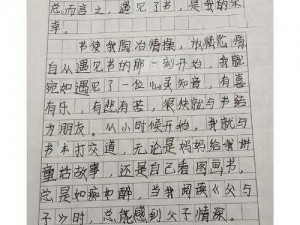 总而言之，遇见了书，是我的荣
幸。
书使我陶冶情操，放松心情
自从遇见书的那一刻开始，我就
宛如遇见了一位心灵知音，有喜
有乐，有悲有苦，很快就与书结
为朋友。从小时候开始，我就与
书本打交道，无论是妈妈给我讲
童话故事，还是自己看图画书。
总是如痴如醉，当我阅读《父与
子》时，总能感到父子情深。